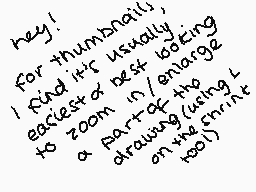 hey!
for thumbnails,
I find it's usually
easiest & best looking
to zoom in/enlarge
a part of the
drawing (using L
on the shrink
tool)